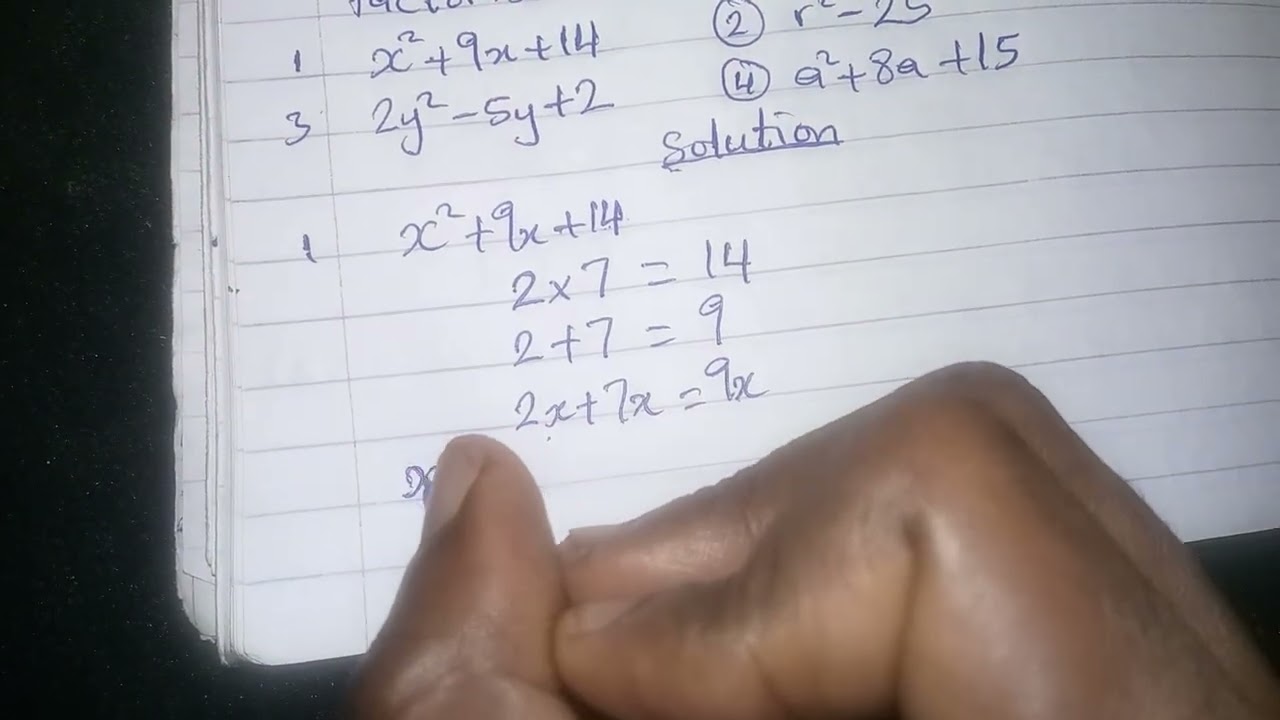 1 x²+9x+14 ② r²-25
3 2y²-5y+2 ④ a²+8a+15
Solution
1 x²+9x+14
2×7 = 14
2+7 = 9
2x+7x = 9x
x